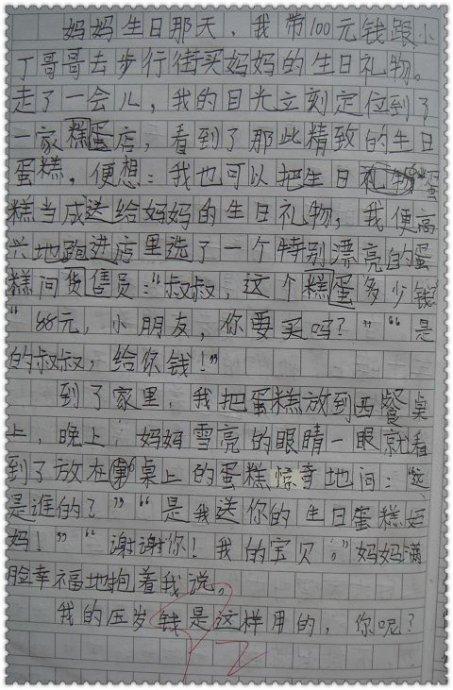 妈妈生日那天，我带100元钱跟小
丁哥哥去步行街买妈妈的生日礼物。
走了一会儿，我的目光立刻定位到了
一家糕蛋店，看到了那此精致的生日
蛋糕，便想：我也可以把生日蛋
糕当成送给妈妈的生日礼物，我便高
兴地跑进店里选了一个特别漂亮的蛋
糕问货售员：“叔叔，这个糕蛋多少钱
“88元，小朋友，你要买吗？”“是
的叔叔，给你钱！”
到了家里，我把蛋糕放到西餐桌
上，晚上，妈妈雪亮的眼睛一眼就看
到了放在桌上的蛋糕惊奇地问：这
是谁的？”“是我送你的生日蛋糕妈
妈！”“谢谢你！我的宝贝。”妈妈满
脸幸福地抱着我说。
我的压岁钱是这样用的，你呢？